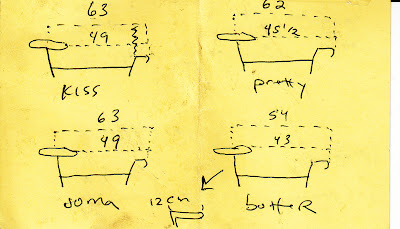 63
49
KISS
62
45 1/2
pretty
63
49
soma
12cm
54
43
butter